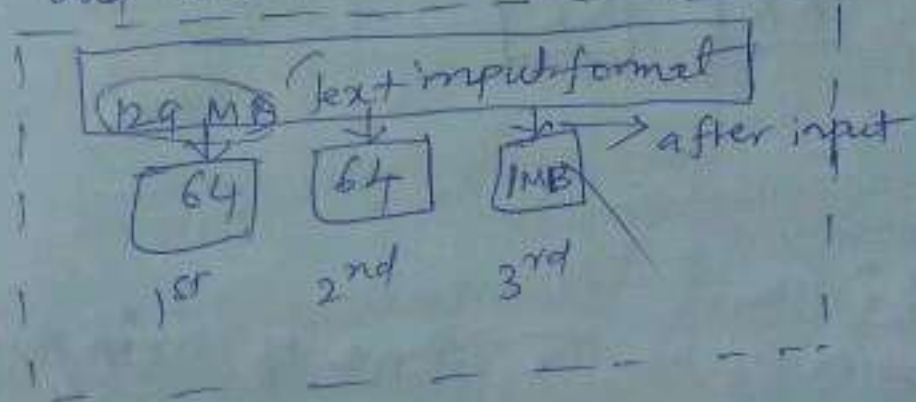 129 MB Text inputformat
after input
64 64 1MB
1st 2nd 3rd